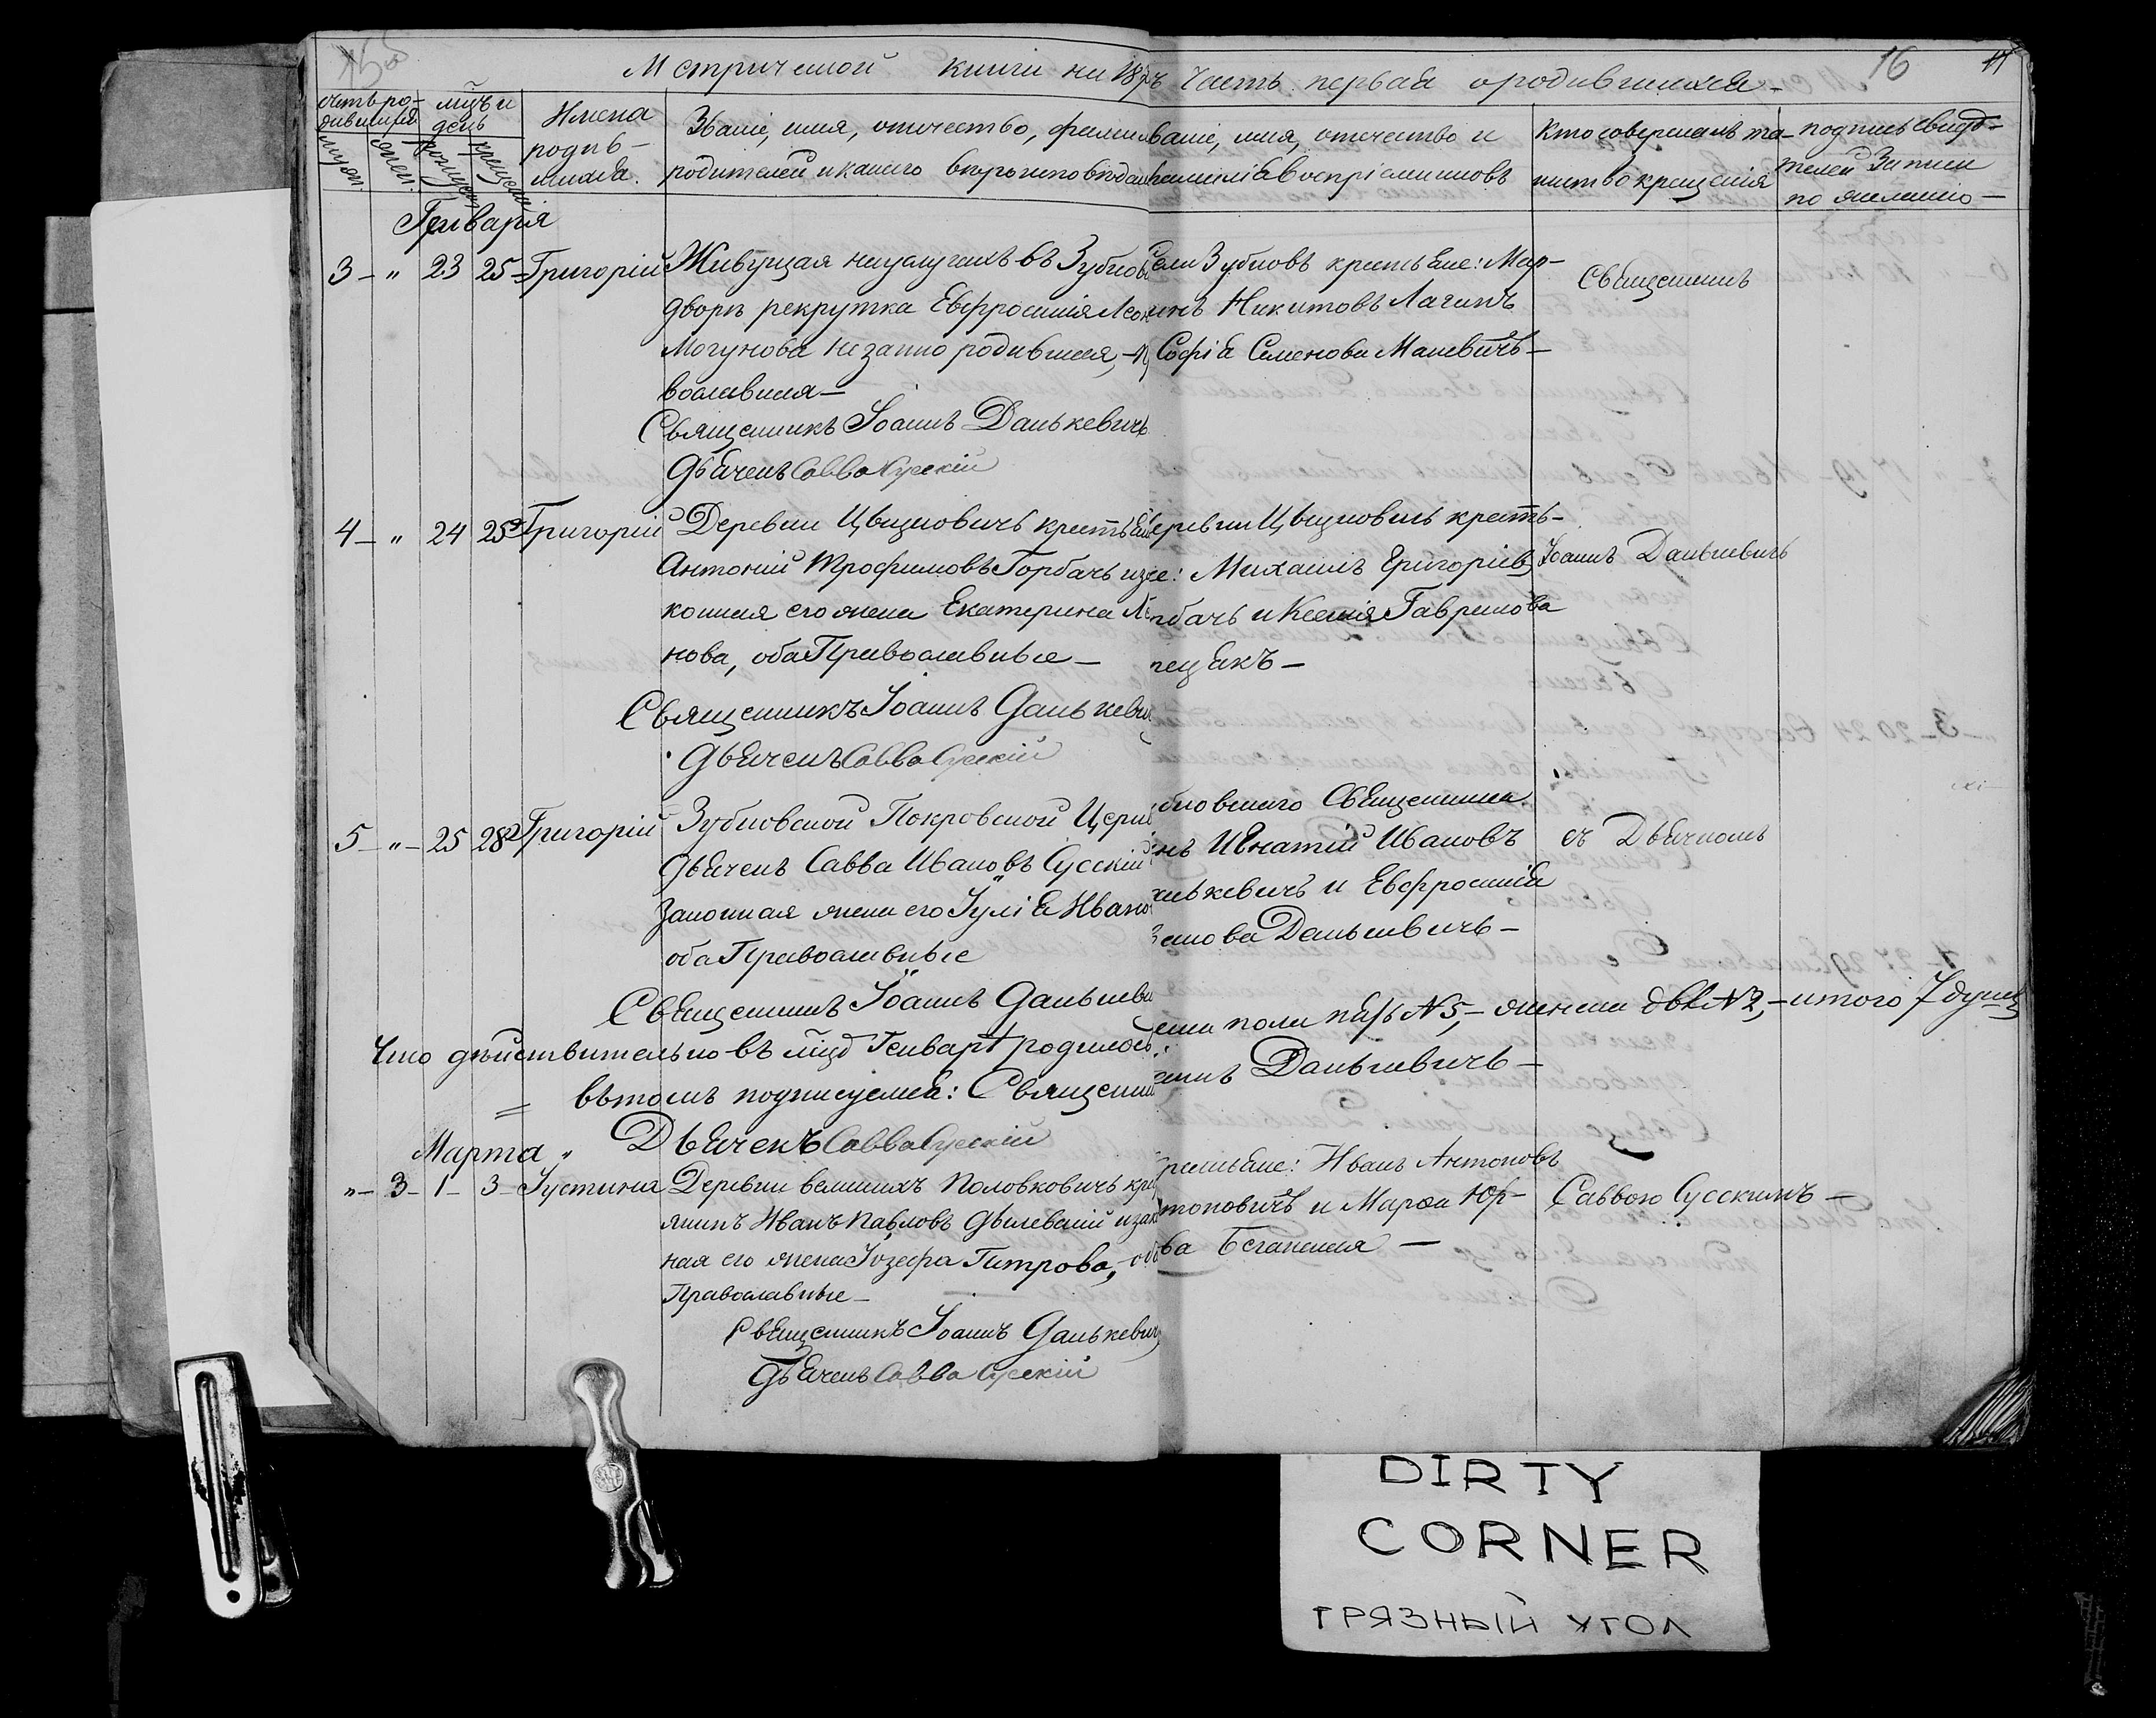 16
Метрической книги на 18 Часть первая о родившихся
счетъ ро-
дившихся
мѣсяцъ и
день
Имена
родив-
шихся.
Званіе, имя, отчество, фамилія
родителей и какого вѣроисповѣданія
муж.
жен.
рожденія
крещенія
Званіе, имя, отчество и
фамилія воспріемниковъ
Кто совершалъ та-
инство крещенія
подпись свидѣ-
телей записи
по желанію
Генваря
3 - " 23 25 Григорій
Живущая на услугахъ въ Зубков
дворѣ рекрутка Евфросинія Леон
Могунова незаконно родившися, - Пр
вославная -
Священникъ Іоаннъ Данькевичъ
Дьячекъ Савва Сусскій
Села Зубковъ крестьяне: Мар-
инъ Никитовъ Лагинъ
Софія Семенова Маневичъ -
Священникъ
4 - " 24 25 Григорій
Деревни Цвцковичъ крестьян
Антоній Трофимовъ Горбачъ и за
конная его жена Екатерина Ле
нова, оба Православные -
Священникъ Іоаннъ Данькевич
Дьячекъ Савва Сусскій
Деревни Цвцковичъ кресть-
не: Михаилъ Григоріевъ
рбачъ и Ксенія Гаврилова
пецякъ -
Іоаннъ Данькевичъ
5 - " - 25 28 Григорій
Зубковской Покровской Церкв
Дьячекъ Савва Ивановъ Сусскій
законная жена его Іулія Ивано
оба Православные
Священникъ Іоаннъ Данькеви
бковскаго Священника
нъ Игнатій Ивановъ
нькевичъ и Евфросинія
Данькевичъ -
съ Дьячкомъ
Что дѣйствительно въ мѣсяцѣ Генварѣ родилось
пола пять № 5, - женска двѣ № 2, - итого 7 душъ
въ томъ подписуемся: Священни
аннъ Данькевичъ -
Дьячекъ Савва Сусскій
Марта
" - 3 - 1 - 3 - Іустина
Деревни великихъ Половковичъ кре
янинъ Иванъ Павловъ Дылевскій и закон
ная его жена Іозефа Питрова, - оба
Православные -
Священникъ Іоаннъ Данькевич
Дьячекъ Савва Сусскій
крестьяне: Иванъ Антоновъ
тоновичъ и Марѳа Юр-
ва
Саввою Сусскимъ -
DIRTY
CORNER
ГРЯЗНЫЙ УГОЛ